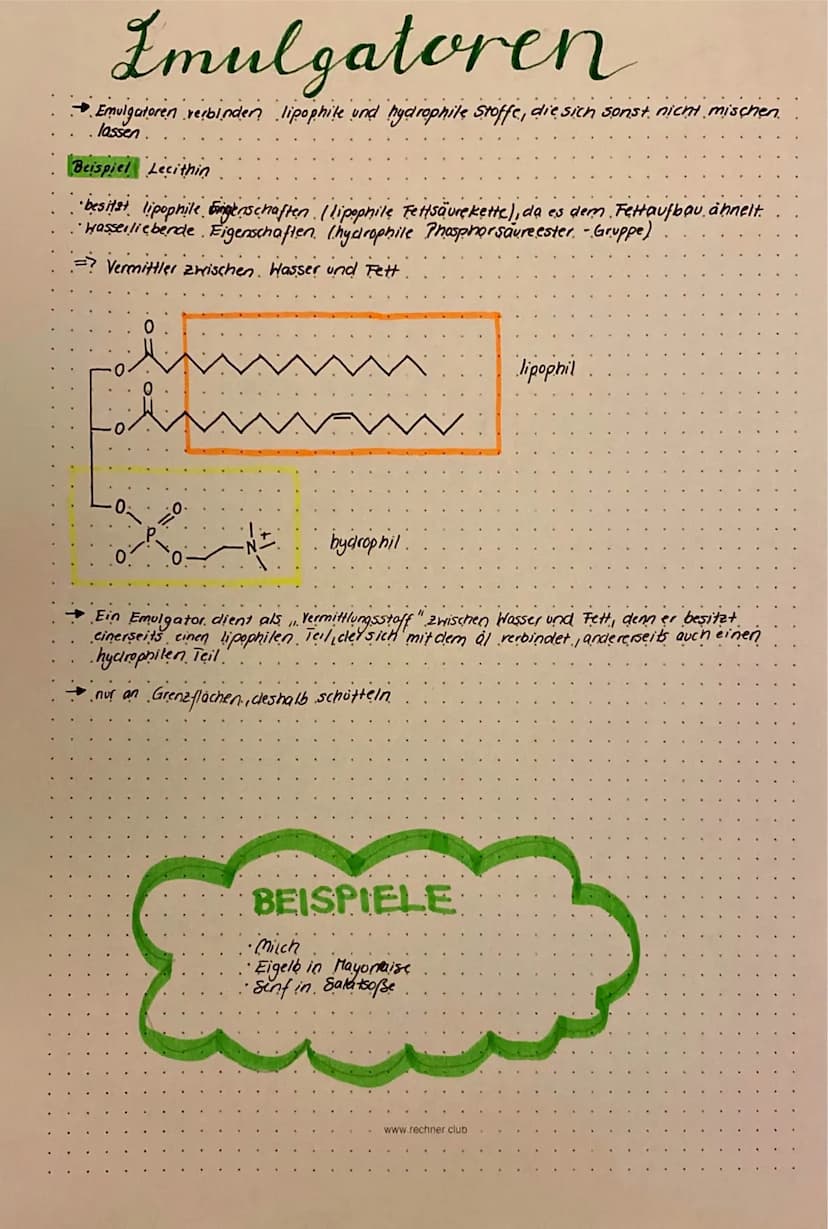 Emulgatoren
→ Emulgatoren verbinden lipophile und hydrophile Stoffe, die sich sonst nicht mischen
lassen.
Beispiel Lecithin
· besitzt lipophile Eigenschaften (lipophile Fettsäurekette), da es dem Fettaufbau ähnelt
· wasserliebende Eigenschaften (hydrophile Phosphorsäureester-Gruppe)
=> Vermittler zwischen Wasser und Fett
O
O
lipophil
O
O
O
O
P
hydrophil
N+
O
O
→ Ein Emulgator dient als „Vermittlungsstoff" zwischen Wasser und Fett, denn er besitzt
einerseits einen lipophilen Teil, der sich mit dem Öl verbindet, andererseits auch einen
hydrophilen Teil
→ nur an Grenzflächen, deshalb schütteln
BEISPIELE
· Milch
· Eigelb in Mayonaise
· Senf in Salatsoße
www.rechner.club